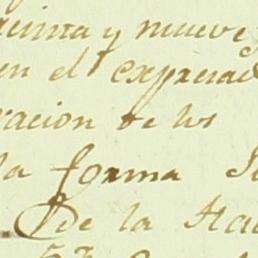 y nueve
en el expresad
racion de los
la forma
De la Ha